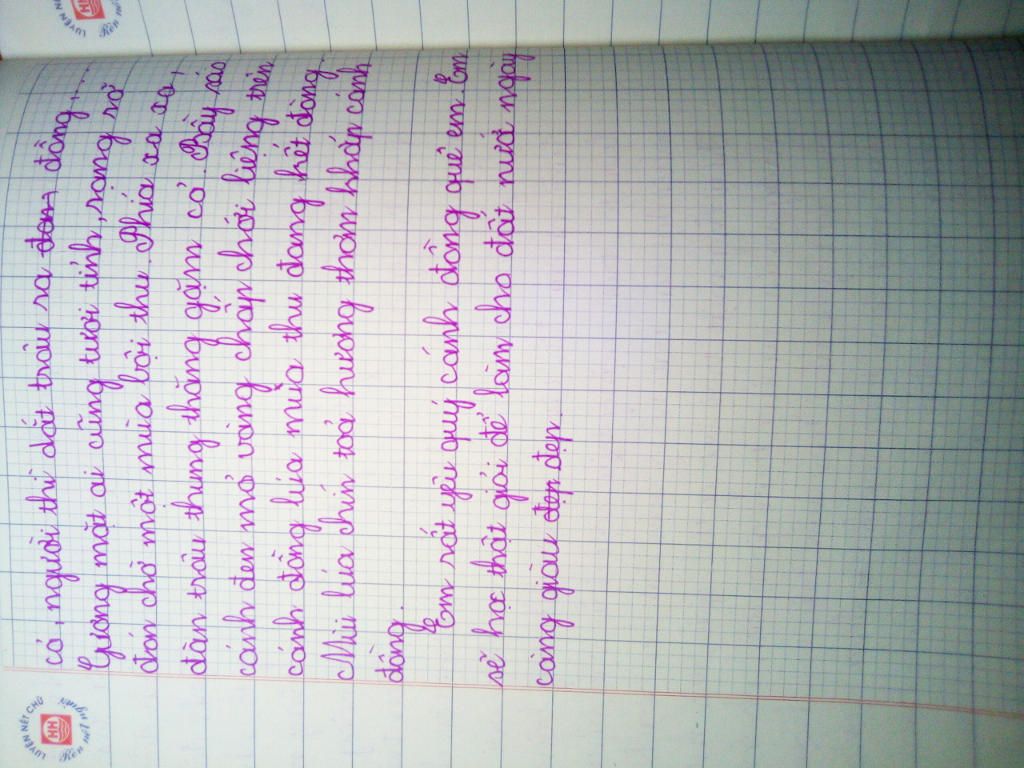 cỏ, người thì dắt trâu ra đon, đồng,...
Gương mặt ai cũng tươi tỉnh, rạng rỡ
đón chờ một mùa bội thu. Phía xa xa,
đàn trâu thung thăng gặm cỏ. Bầy sáo
cánh đen mỏ vàng chấp chới liệng trên
cánh đồng lúa mùa thu đang hết đòng.
Mùi lúa chín toả hương thơm khắp cánh
đồng.
Em rất yêu quý cánh đồng quê em. Em
sẽ học thật giỏi để làm cho đất nước ngày
càng giàu đẹp đẹp.
LUYỆN NÉT CHỮ
HH
Rèn nết người
LUYỆN
HH
Rèn nết